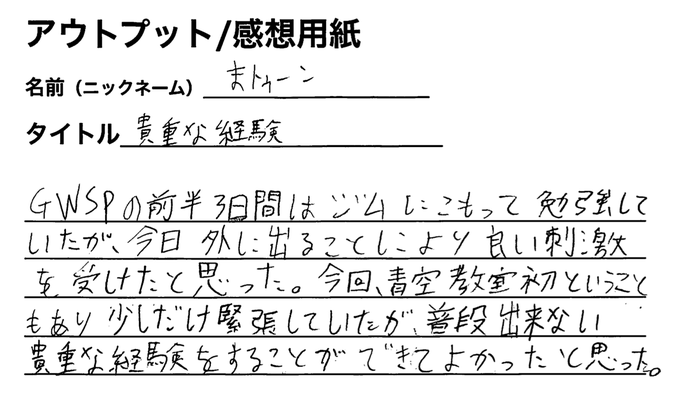 アウトプット/感想用紙
名前（ニックネーム） まトゥーン
タイトル 貴重な経験
GWSPの前半3日間はジムにこもって勉強して
いたが、今日外に出ることにより良い刺激
を受けたと思った。今回、青空教室初ということ
もあり少しだけ緊張していたが、普段出来ない
貴重な経験をすることができてよかったと思った。